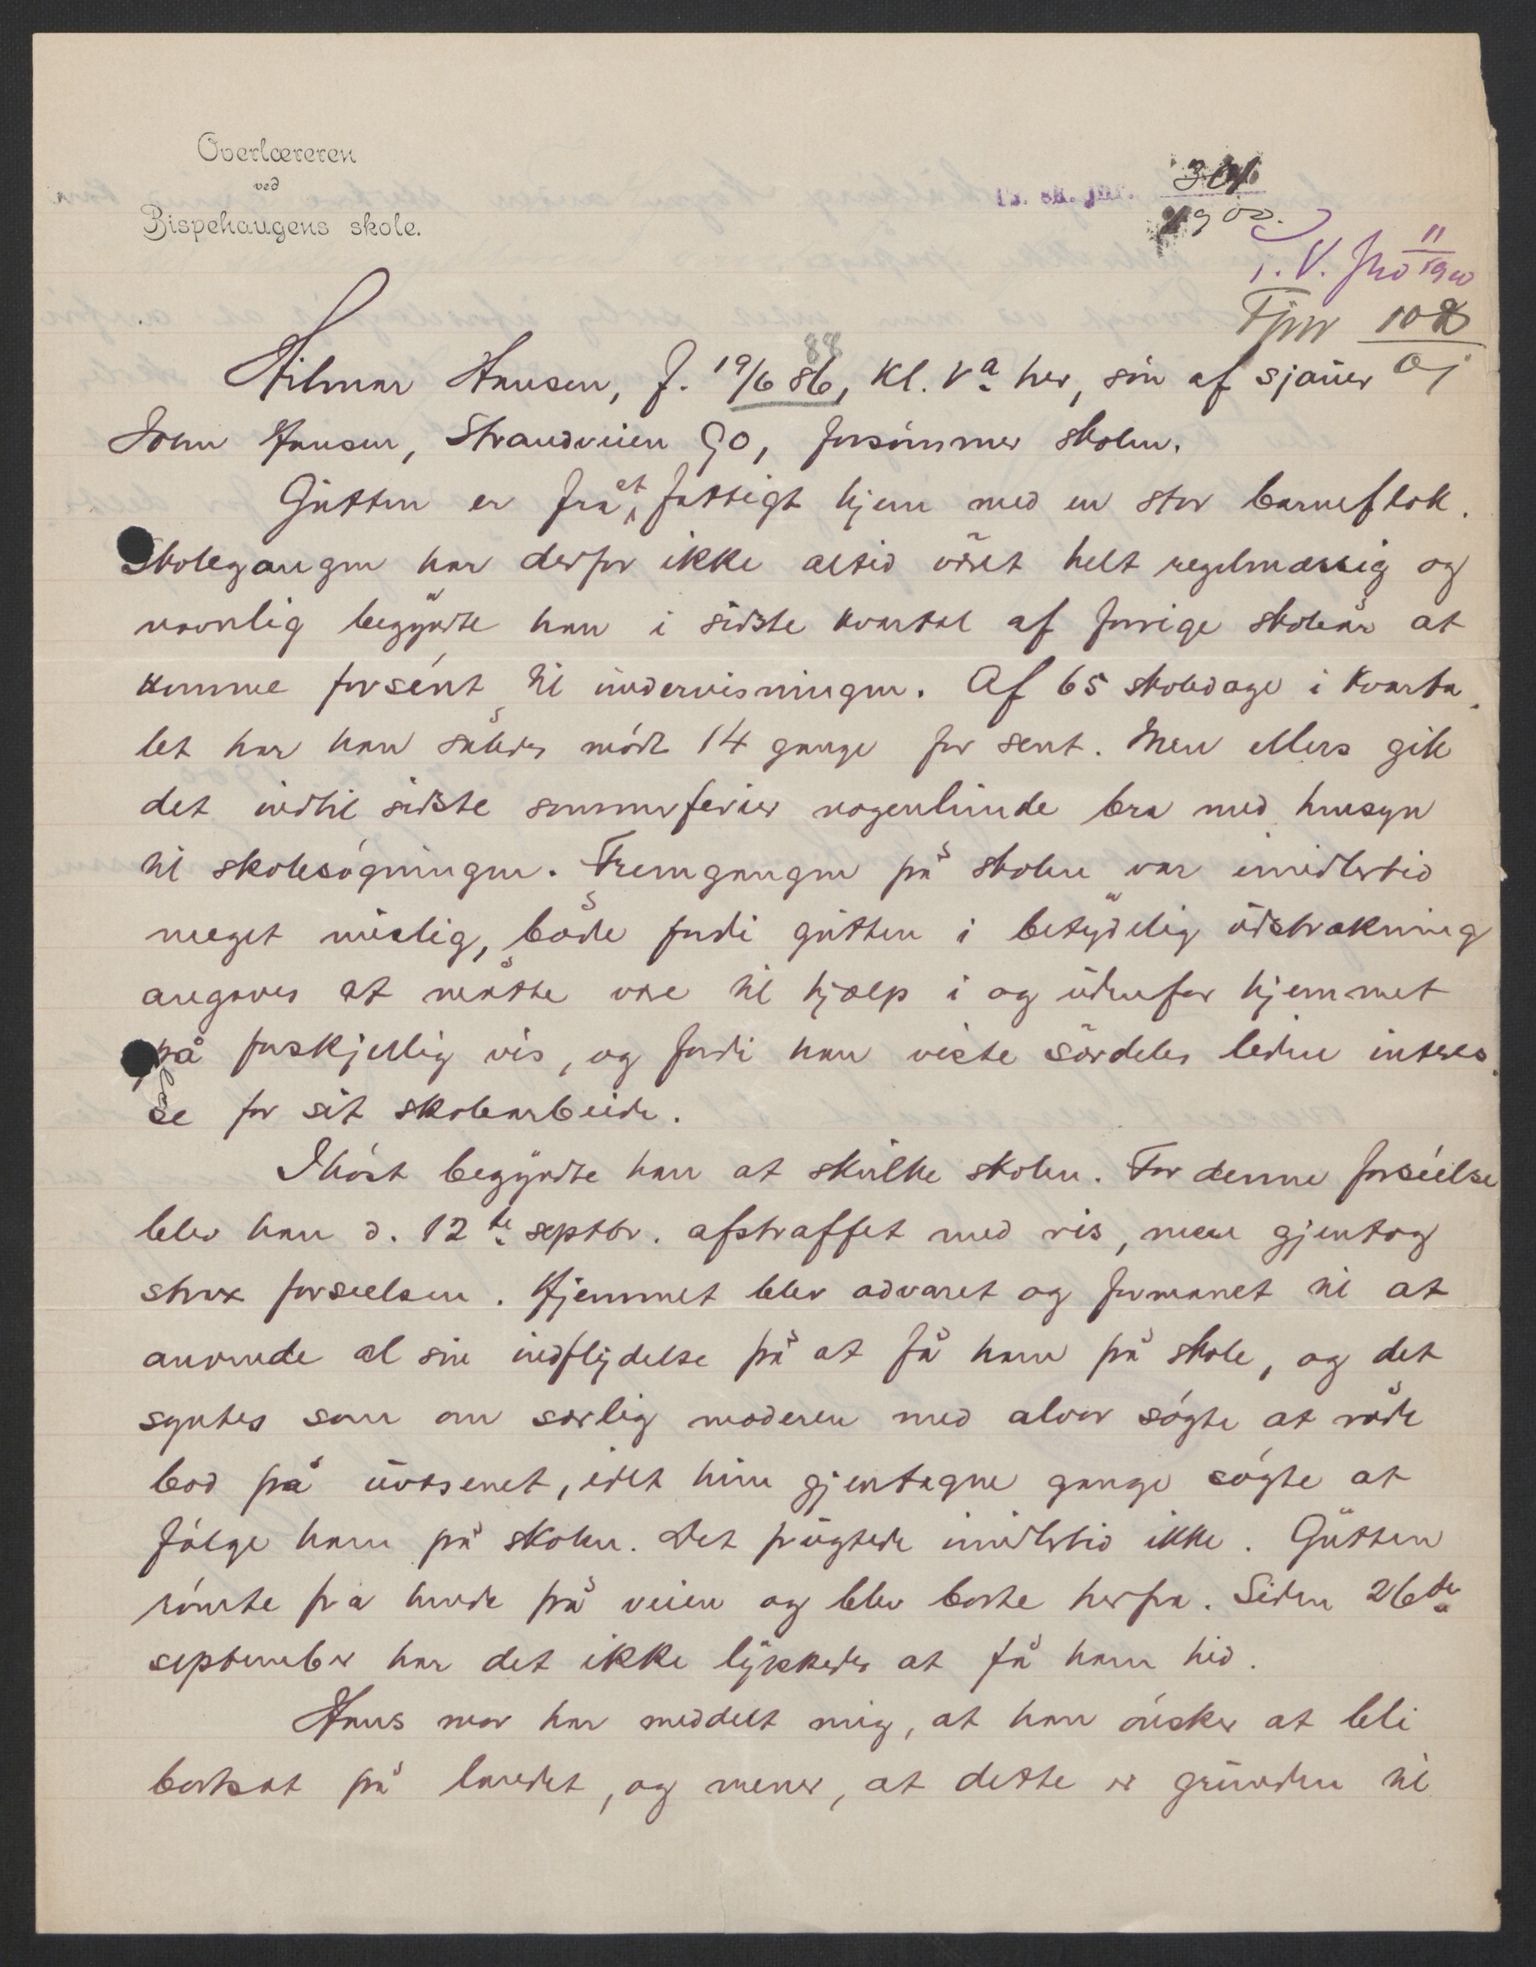 Overlæreren
ved
Bispehaugens skole.
Ts. sk. jnr. 306
1900.
T. V. jno 11/1900
Fjnr 108
01
88
Hilmar Hansen, f. 19/6 86, kl. Va her, søn af sjauer
John Hansen, Strandveien 90, forsømmer skolen.
Gutten er fra et fattigt hjem med en stor barneflok.
Skolegangen har derfor ikke altid været helt regelmæssig og
navnlig begyndte han i sidste kvartal af forrige skoleår at
komme forsént til undervisningen. Af 65 skoledage i kvarta-
let har han således mødt 14 gange for sent. Men ellers gik
det indtil sidste sommerferier nogenlunde bra med hensyn
til skolesøgningen. Fremgangen på skolen var imidlertid
meget mislig, både fordi gutten i betydelig udstrækning
angaves at måtte være til hjælp i og udenfor hjemmet
på forskjellig vis, og fordi han viste særdeles liden interes-
se for sit skolearbeide.
Ihøst begyndte han at skulke skolen. For denne forséelse
blev han d. 12te septbr. afstraffet med ris, men gjentog
strax forseelsen. Hjemmet blev advaret og formanet til at
anvende al sin indflydelse på at få ham på skole, og det
syntes som om særlig moderen med alvor søgte at råde
bod på uvæsenet, idet hun gjentagne gange søgte at
følge ham på skolen. Det frugtede imidlertid ikke. Gutten
rømte fra hende på veien og blev borte herfra. Siden 26de
september har det ikke lykkedes at få ham hid.
Hans mor har meddelt mig, at han ønsker at bli
bortsat på landet, og mener, at dette er grunden til